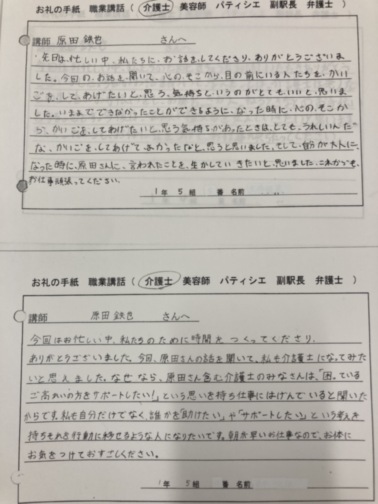 お礼の手紙 職業講話（ 介護士 美容師 パティシエ 副駅長 弁護士 ）
講師 原田 鉄也 さんへ
先日は忙しい中、私たちに、お話をしてくださり、ありがとうございま
した。今回の、お話を聞いて、心の、そこから、目の前にいる人たちを、かい
ごを、してあげたいと、思う、気持ちというのがとてもいいと、思いま
した。いままでできなかったことができるように、なった時に、心の、そこか
ら、かいごを、してあげたいと、思う気持ちがあったときは、とても、うれしいんだ
な、かいごを、してあげて、よかったなと、思うと思いました。そして、自分が大人に、
なった時に、原田さんに、言われたことを、生かしていきたいと、思いました。これからも、
お仕事頑張ってください。
1年 5組 番 名前
お礼の手紙 職業講話（ 介護士 美容師 パティシエ 副駅長 弁護士 ）
講師 原田 鉄也 さんへ
今回はお忙しい中、私たちのために時間をつくってくださり、
ありがとうございました。今回、原田さんの話を聞いて、私も介護士になってみた
いと思えました。なぜなら、原田さん含む介護士のみなさんは、「困っている
ご高れいの方をサポートしたい！」という思いを持ち仕事にはげんでいると聞いた
からです。私も自分だけでなく、誰かを「助けたい」や「サポートしたい」という考えを
持ちそれを行動に移せるような人になりたいです。朝が早いお仕事なので、お体に
お気をつけておすごしください。
1年 5組 番 名前